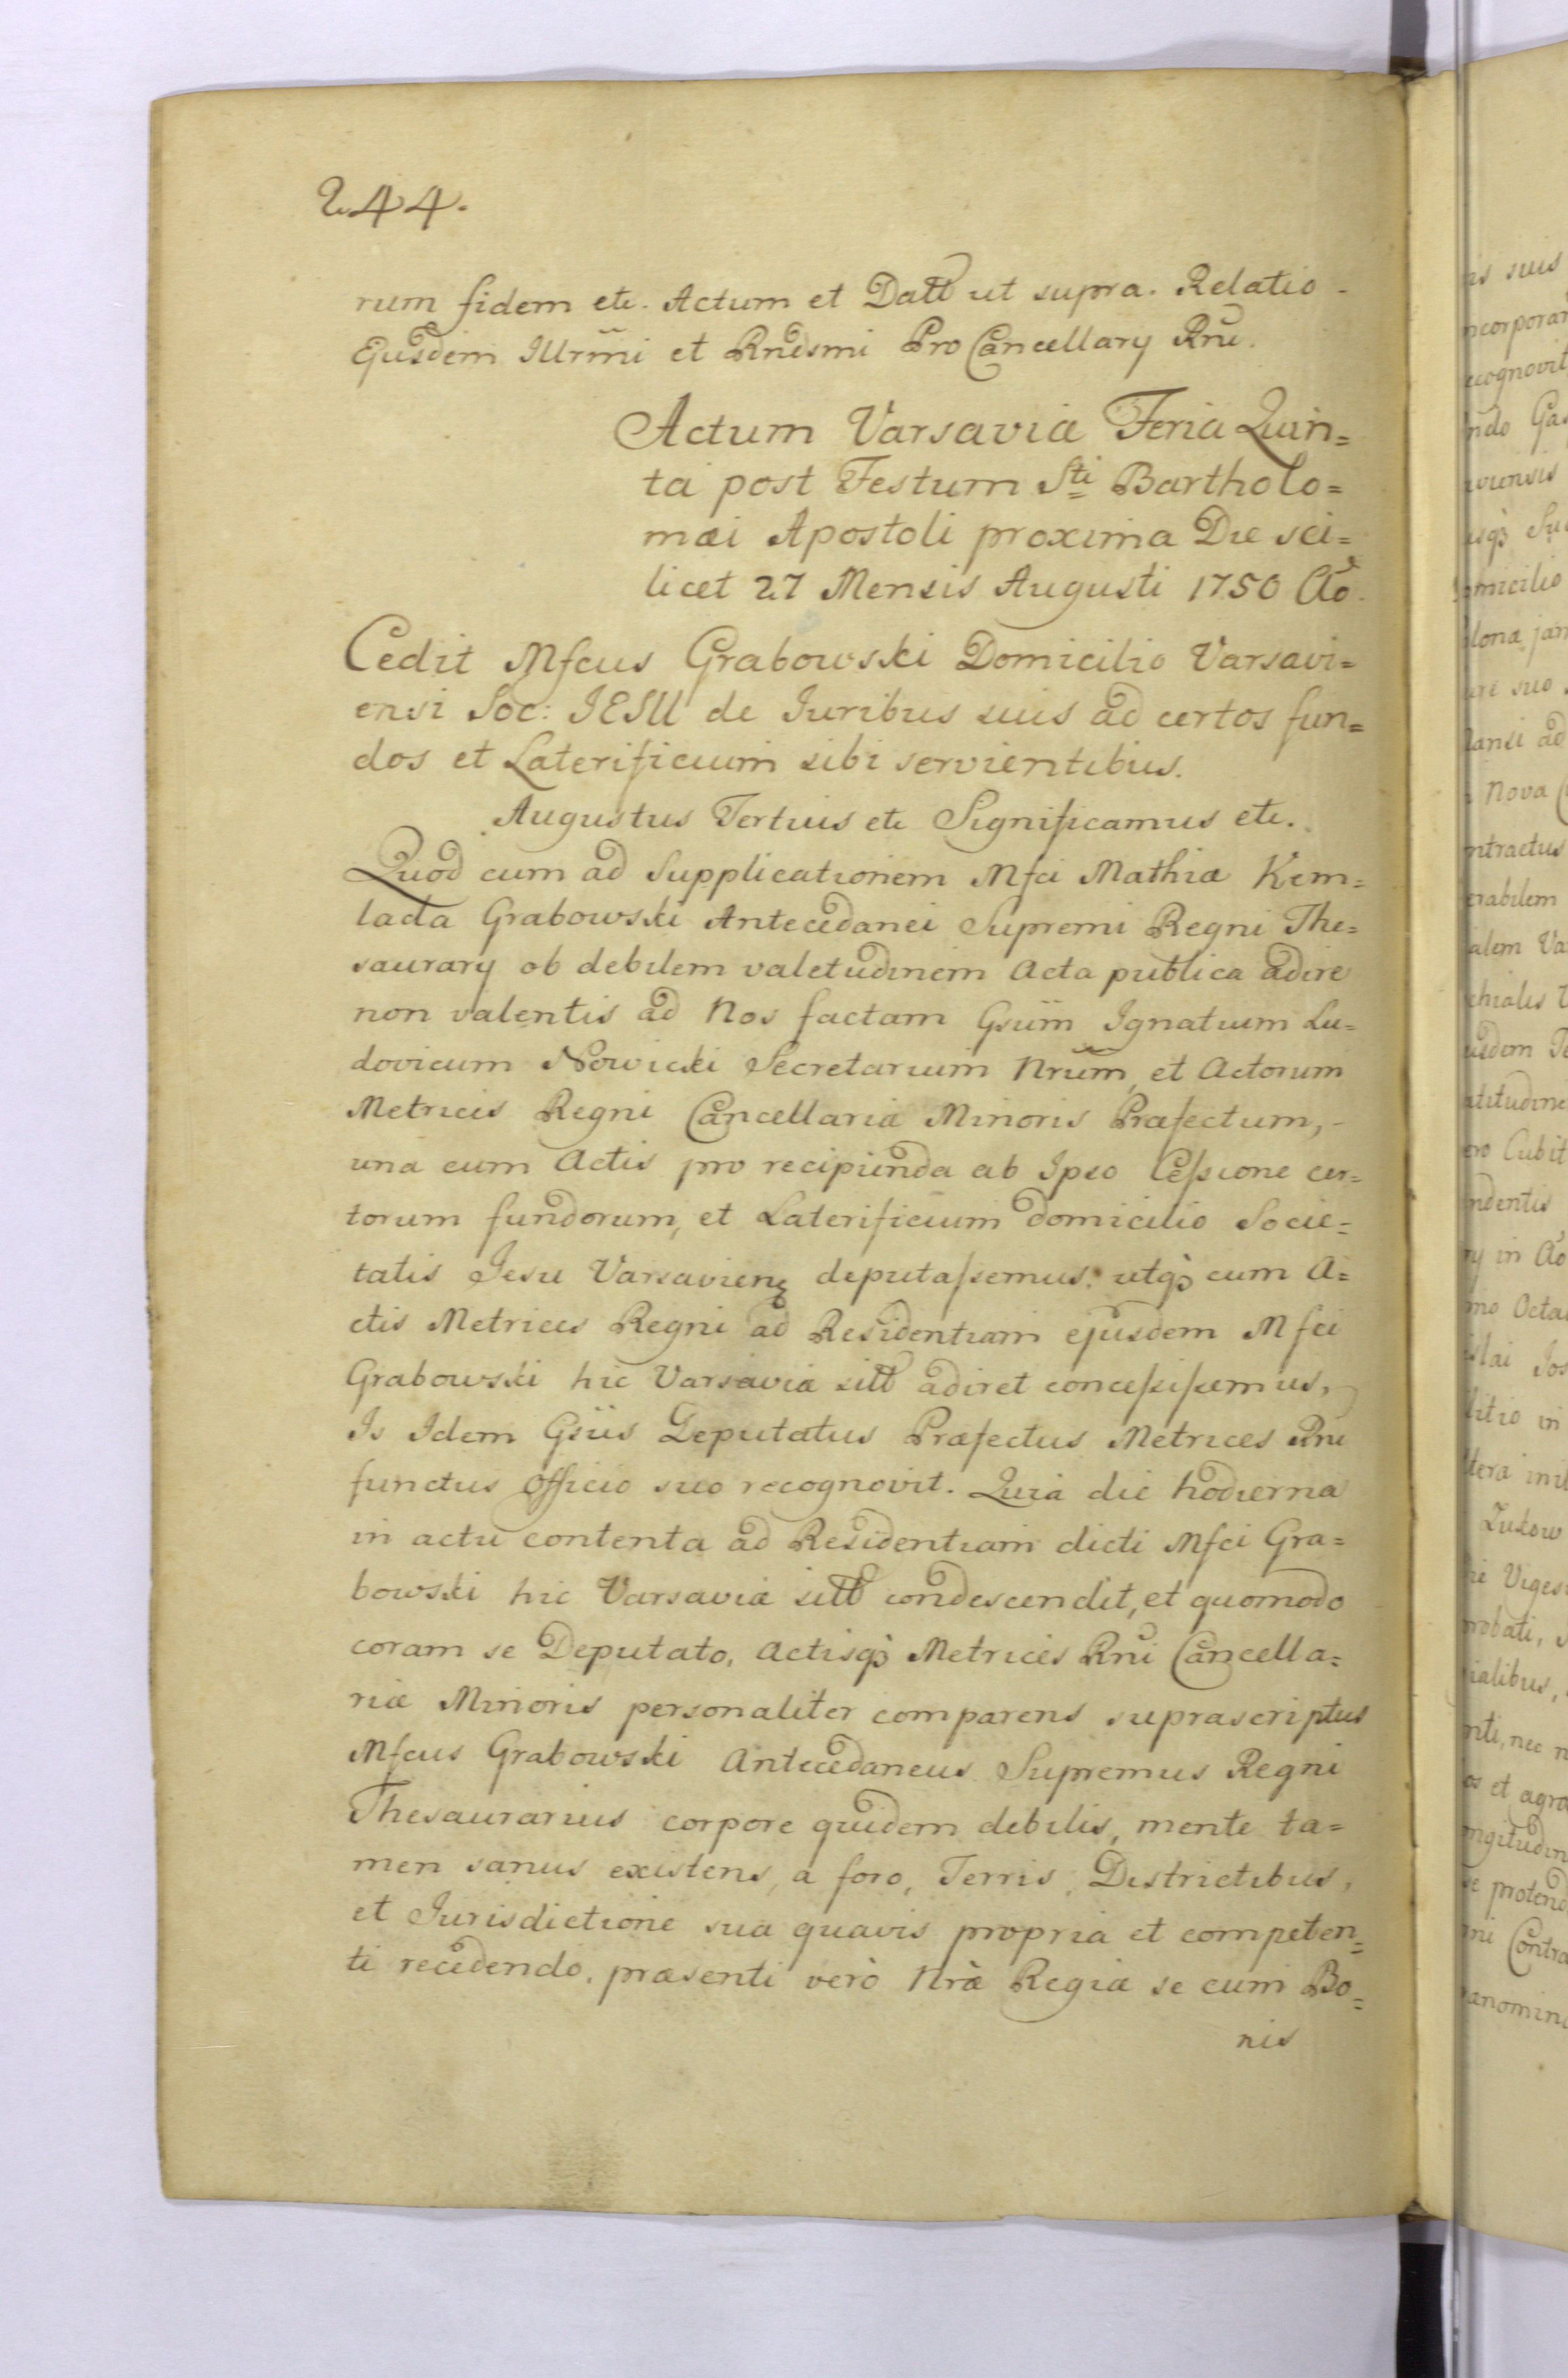 244.
rum fidem etc. Actum et Datt ut supra. Relatio
Ejusdem Illrmi et Rndsmi Pro Cancellary Rni.
Actum Varsaviæ Feria Quin=
ta post Festum Sti Bartholo=
mæi Apostoli proxima Die sci=
licet 27 Mensis Augusti 1750 Ao.
Cedit Mfcus Grabowski Domicilio Varsavi=
ensi Soc: IESU de Iuribus suis ad certos fun=
dos et Laterificium sibi servientibus.
Augustus Tertius etc Significamus etc.
Quod cum ad Supplicationem Mfci Mathiæ Kem=
lada Grabowski Antecedanei Supremi Regni The=
saurary ob debilem valetudinem Acta publica adire
non valentis ad Nos factam Gsum Ignatium Lu=
dovicum Nowicki Secretarium Nrum, et Actorum
Metrices Regni Cancellariæ Minoris Præfectum,
una cum Actis pro recipienda ab Ipso Cessione cer=
torum fundorum, et Laterificium domicilio Socie=
tatis Jesu Varsavien deputassemus. utq cum A=
ctis Metrices Regni ad Residentiam ejusdem Mfci
Grabowski hic Varsaviæ sitt adiret concessissemus,
Is Idem Gsus Deputatus Præfectus Metrices Rni
functus Officio suo recognovit. Quia die hodierna
in actu contenta ad Residentiam dicti Mfci Gra=
bowski hic Varsaviæ sitt condescendit, et quomodo
coram se Deputato, Actisq Metrices Rni Cancella=
riæ Minoris personaliter comparens suprascriptus
Mfcus Grabowski Antecedaneus Supremus Regni
Thesaurarius corpore quidem debilis, mente ta=
men sanus existens, a foro, Terris, Districtibus,
et Iurisdictione sua quavis propria et competen=
ti recedendo, præsenti verò Nræ Regiæ se cum Bo=
nis